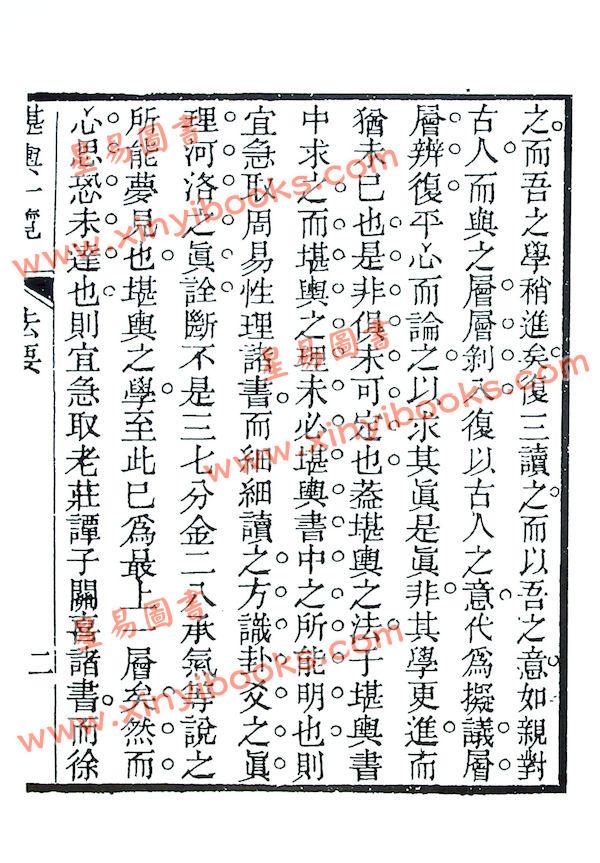 之而吾之學稍進矣復三讀之而以吾之意如親對
古人而與之層層剝入復以古人之意代爲擬議層
層辨復平心而論之以求其眞是眞非其學更進而
猶未已也是非俱未可定也葢堪輿之法于堪輿書
中求之而堪輿之理未必堪輿書中之所能明也則
宜急取周易性理諸書而細細讀之方識卦爻之眞
理河洛之眞詮斷不是三七分金二八承氣等說之
所能夢見也堪輿之學至此已爲最上一層矣然而
心思恐未達也則宜急取老莊譚子關喜諸書而徐
堪輿一覽
法要
二
星易圖書
www.xinyibooks.com
星易圖書
www.xinyibooks.com
星易圖書
www.xinyibooks.com